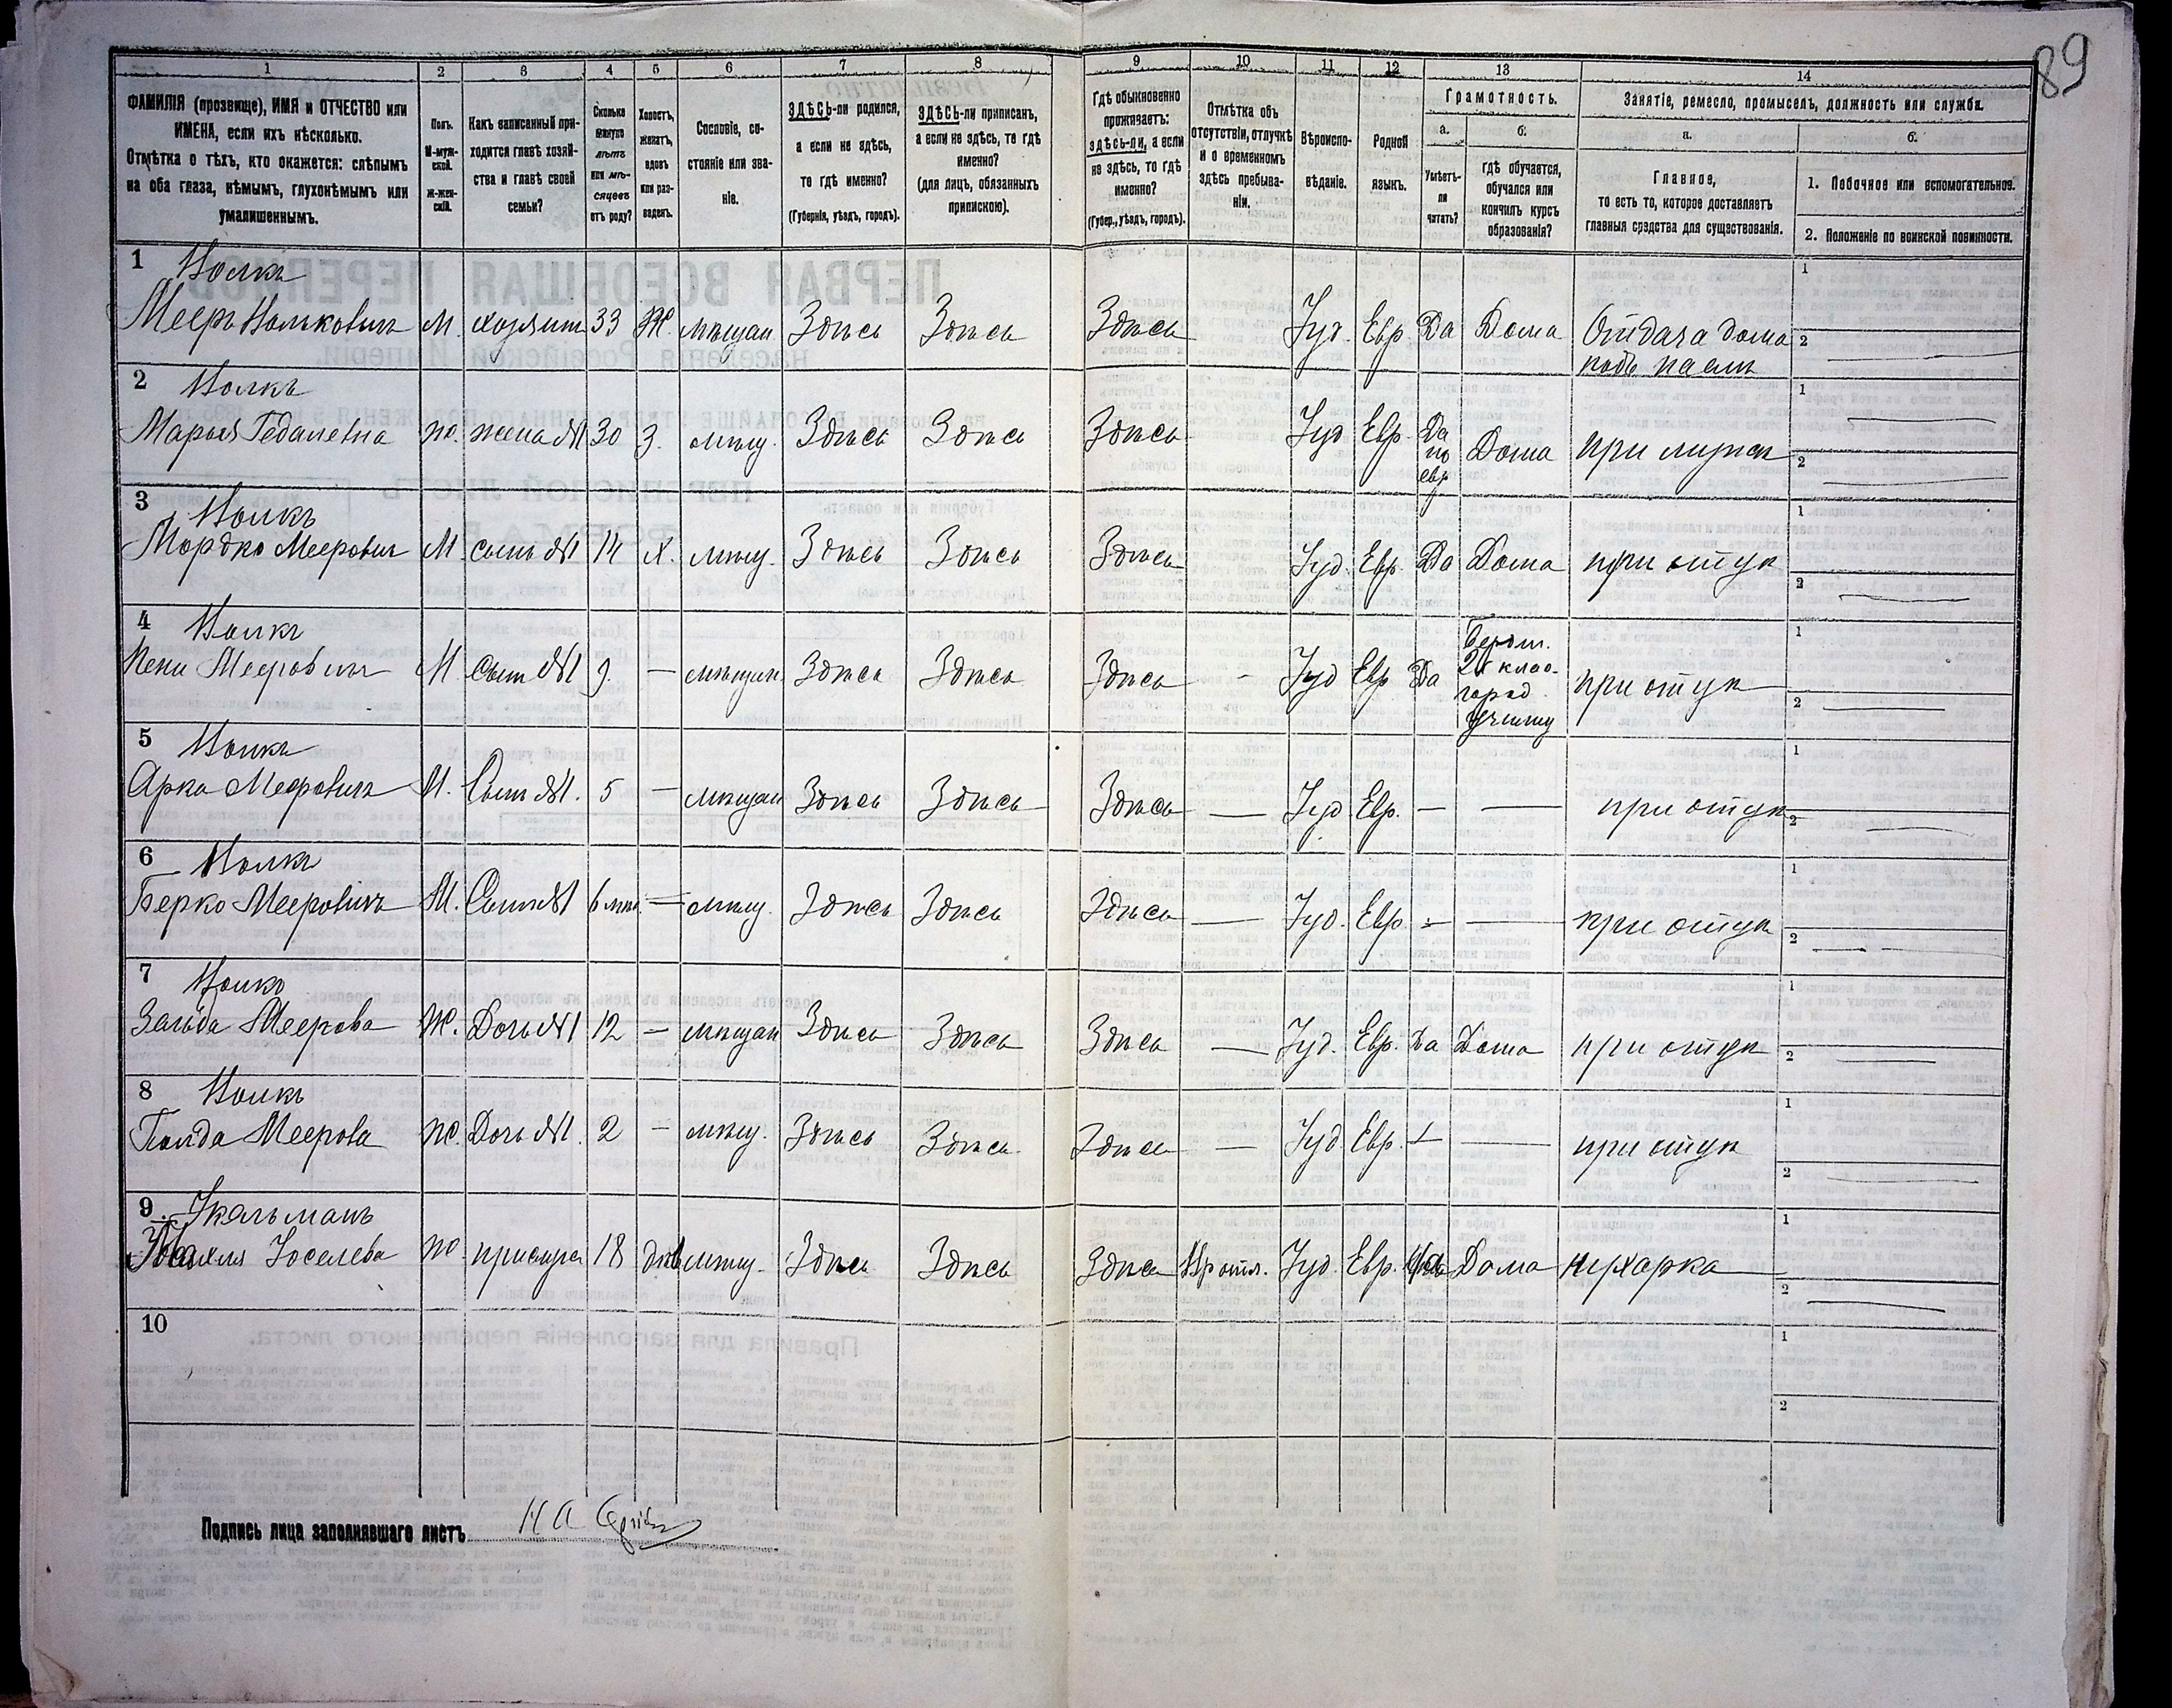 89
1
2
3
4
5
6
7
8
9
10
11
12
13
14
ФАМИЛІЯ (прозвище), ИМЯ и ОТЧЕСТВО или
ИМЕНА, если ихъ нѣсколько.
Отмѣтка о тѣхъ, кто окажется: слѣпымъ
на оба глаза, нѣмымъ, глухонѣмымъ или
умалишеннымъ.
Полъ.
М-муж-
ской.
Ж-жен-
скій.
Какъ записанный при-
ходится главѣ хозяй-
ства и главѣ своей
семьи?
Сколько
минуло
лѣтъ
или мѣ-
сяцевъ
отъ роду?
Холостъ,
женатъ,
вдовъ
или раз-
веденъ.
Сословіе, со-
стояніе или зва-
ніе.
ЗДѢСЬ-ли родился,
а если не здѣсь,
то гдѣ именно?
(Губернія, уѣздъ, городъ).
ЗДѢСЬ-ли приписан,
а если не здѣсь, то гдѣ
именно?
(для лицъ, обязанныхъ
припискою).
Гдѣ обыкновенно
проживаетъ:
здѣсь-ли, а если
не здѣсь, то гдѣ
именно?
(Губер., уѣздъ, городъ).
Отмѣтка объ
отсутствіи, отлучкѣ
и о временномъ
здѣсь пребыва-
ніи.
Вѣроиспо-
вѣданіе.
Родной
языкъ.
Грамотность.
а.
б.
Умѣетъ-
ли
читать?
гдѣ обучается,
обучался или
кончилъ курсъ
образованія?
Занятіе, ремесло, промыселъ, должность или служба.
а.
б.
Главное,
то есть то, которое доставляетъ
главныя средства для существованія.
1. Побочное или вспомогательное.
2. Положеніе по воинской повинности.
1 Волкъ
Мееръ М. хозяинъ 33 Ж. мѣщан. Здѣсь Здѣсь Здѣсь Іуд. Евр. Да Дома Отдача дома
подъ наемъ
1
2
2 Волкъ
Марья Гедалевна ж. жена №1 30 З. мѣщ. Здѣсь Здѣсь Здѣсь Іуд Евр. Да
по
евр Дома при мужѣ
1
2
3 Волкъ
Мордко Мееровичъ М сынъ №1 14 Х. мѣщ. Здѣсь Здѣсь Здѣсь Іуд. Евр. Да Дома при отцѣ
1
2
4 Волкъ
Мееровичъ М. сынъ №1 9. — мѣщан. Здѣсь Здѣсь Здѣсь - Іуд Евр Да 2х клас.
город.
училищ при отцѣ
1
2
5 Волкъ
Арка Мееровичъ М. Сынъ №1. 5 — мѣщан Здѣсь Здѣсь Здѣсь — Іуд Евр. — — при отцѣ
1
2
6 Волкъ
Берко Мееровичъ М. Сынъ №1 6 мѣс. — мѣщ. Здѣсь Здѣсь Здѣсь — Іуд. Евр. — — при отцѣ
1
2
7 Волкъ
Меерова Ж. Дочь №1 12 — мѣщан Здѣсь Здѣсь Здѣсь — Іуд. Евр. Да Дома при отцѣ
1
2
8 Волкъ
Меерова ж. Дочь №1. 2 — мѣщ. Здѣсь Здѣсь Здѣсь — Іуд Евр. — — при отцѣ
1
2
9.
Іоселева ж. прислуга 18 дѣв мѣщ. Здѣсь Здѣсь Здѣсь Іуд. Евр. Да Дома кухарка
1
2
10
1
2
Подпись лица заполнявшаго листъ